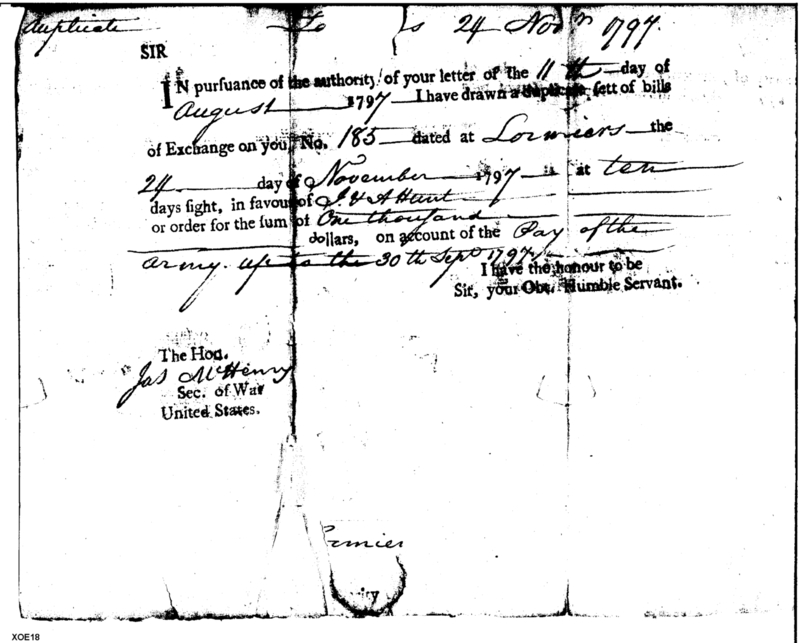 Duplicate 24 Novr 1797.
SIR
IN pursuance of the authority of your letter of the 11th day of
August 1797 I have drawn a duplicate sett of bills
of Exchange on you, No. 185 dated at Lormiers the
24 day of November 1797 at ten
days sight, in favour of J. & A Hunt
or order for the sum of One thousand
dollars, on account of the Pay of the
army. up to the 30th Sept. 1797
I have the honour to be
Sir, your Obt. Humble Servant.
The Hon.
Jas McHenry
Sec. of War
United States.
XOE18